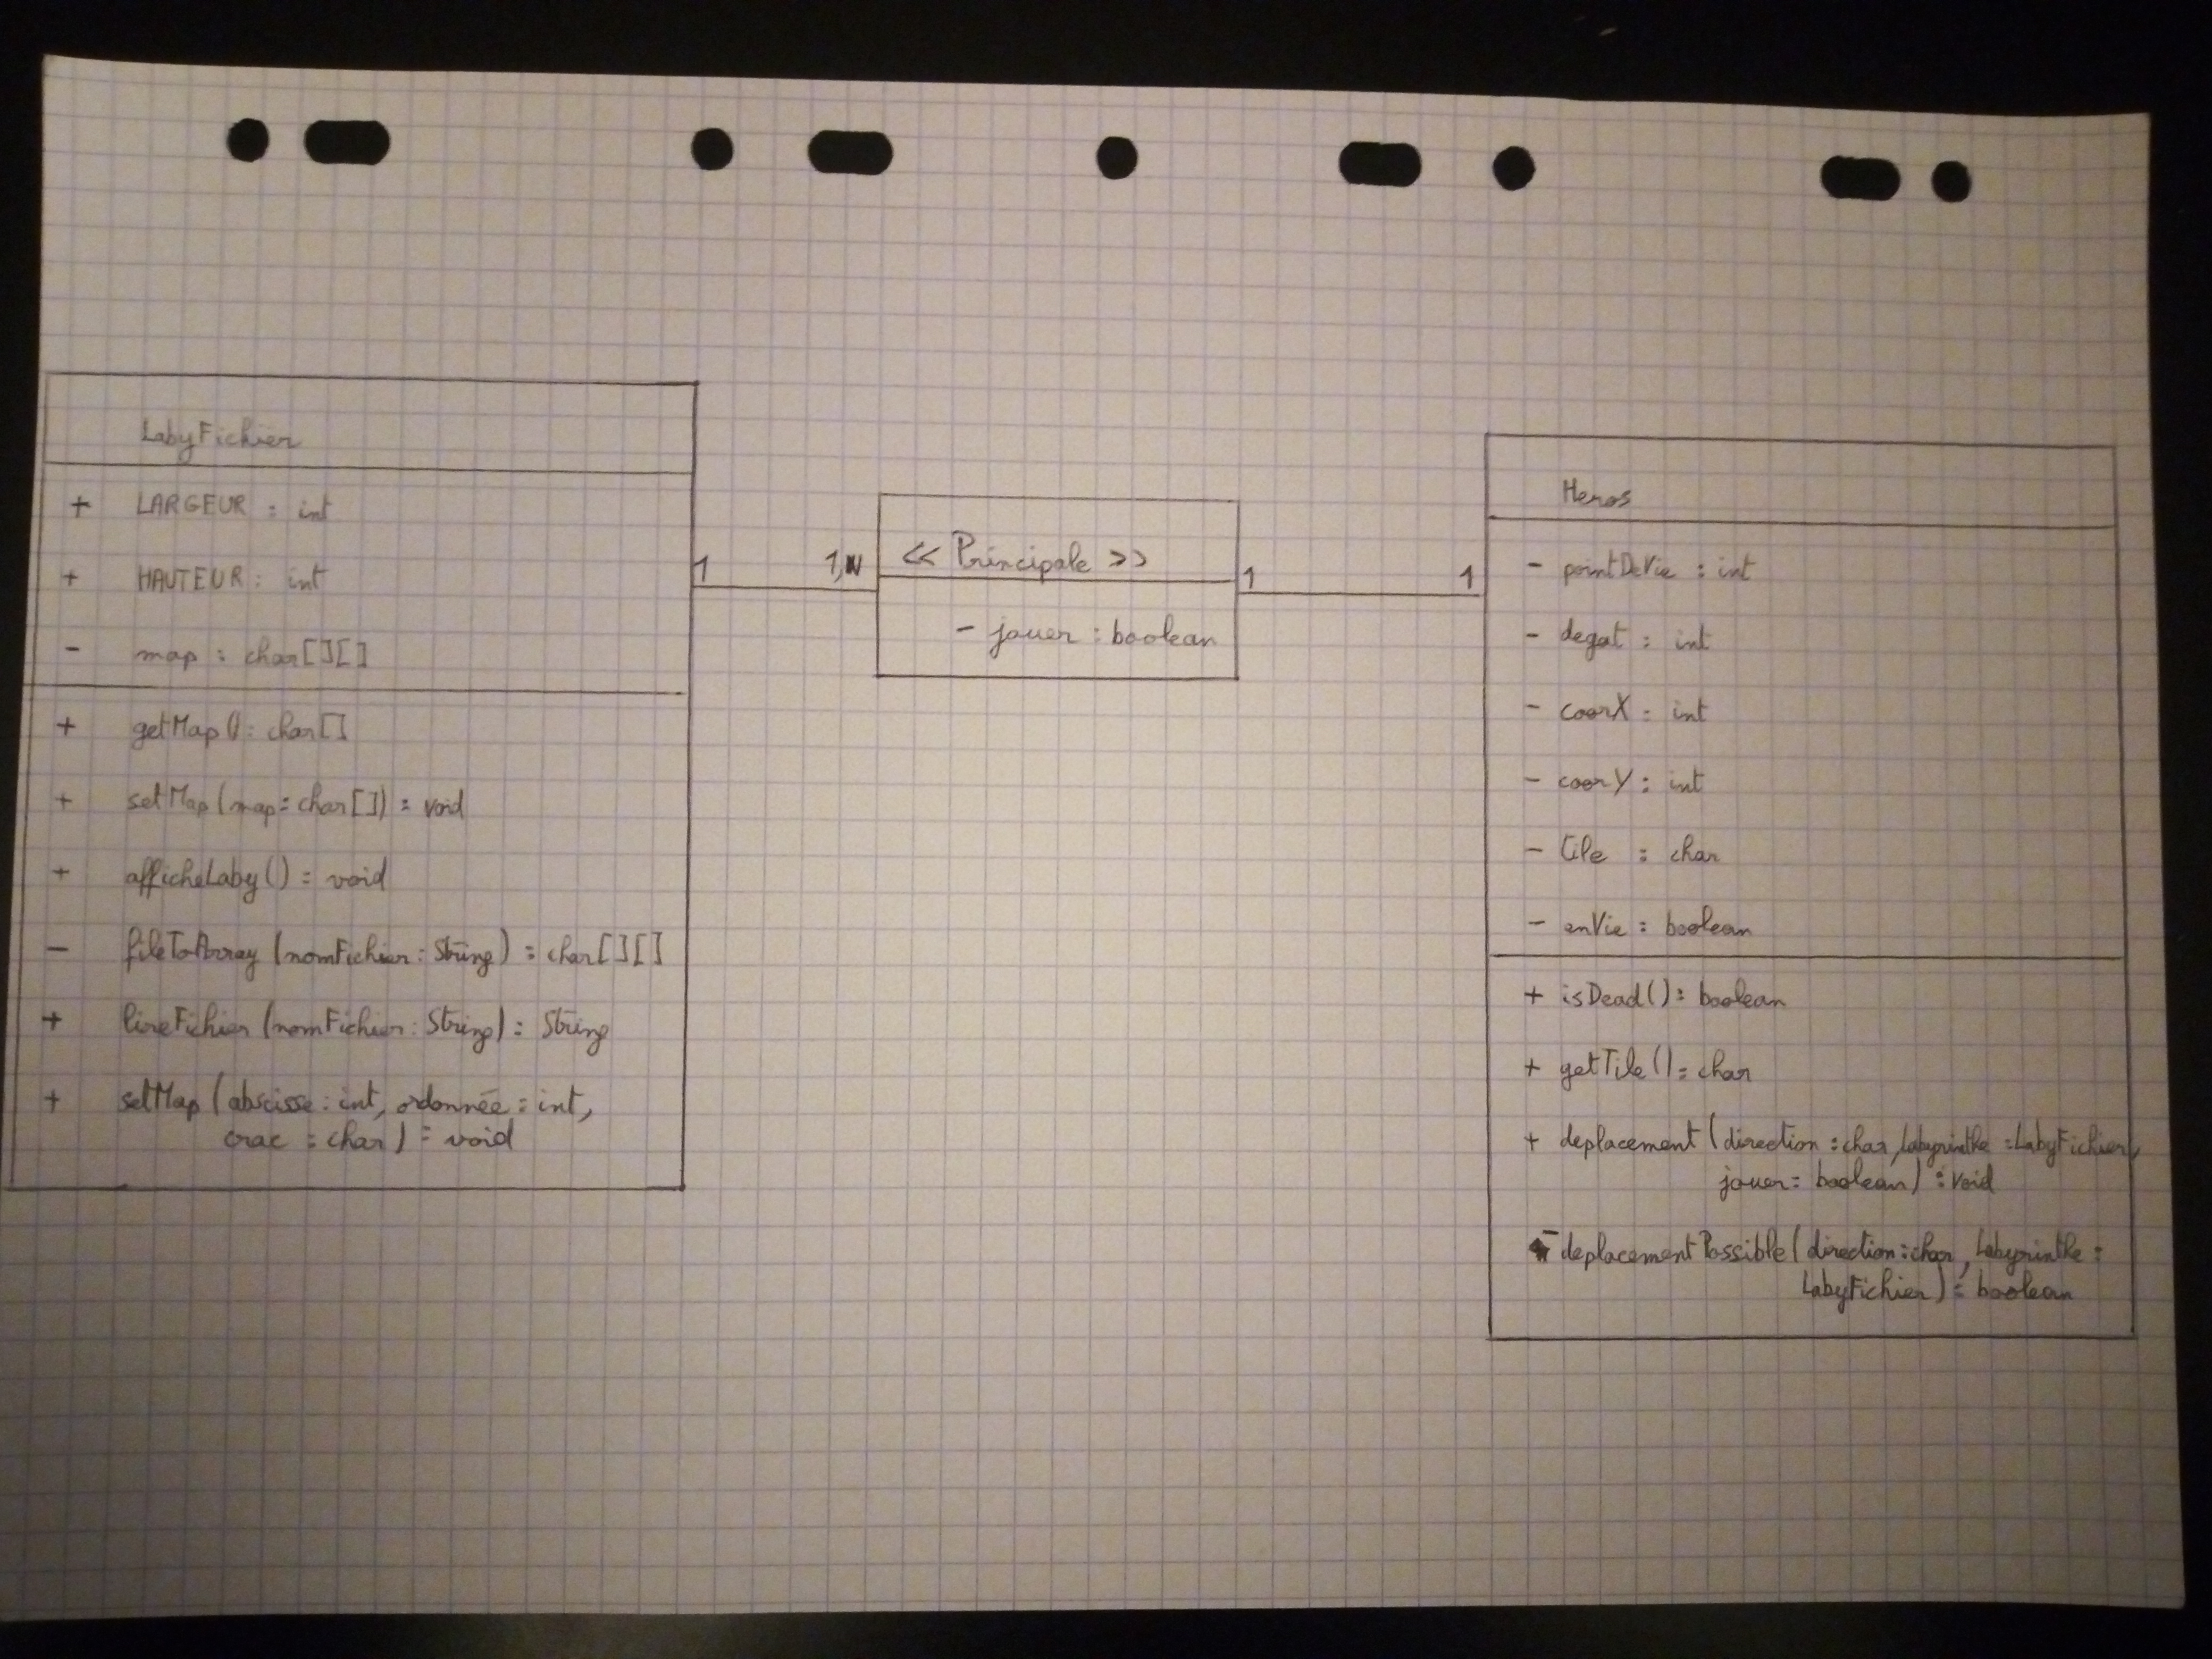 LabyFichier
+ LARGEUR : int
+ HAUTEUR : int
- map : char[][]
+ getMap() : char[]
+ setMap(map : char[]) : void
+ afficheLaby() : void
- fileToArray(nomFichier : String) : char[][]
+ lireFichier(nomFichier : String) : String
+ setMap(abscisse : int, ordonnée : int,
crac : char) : void
1 1,N
<< Principale >>
- jouer : boolean
1 1
Heros
- pointDeVie : int
- degat : int
- coorX : int
- coorY : int
- tile : char
- enVie : boolean
+ isDead() : boolean
+ getTile() : char
+ deplacement(direction : char, labyrinthe : LabyFichier,
jouer : boolean) : void
- deplacementPossible(direction : char, Labyrinthe :
LabyFichier) : boolean